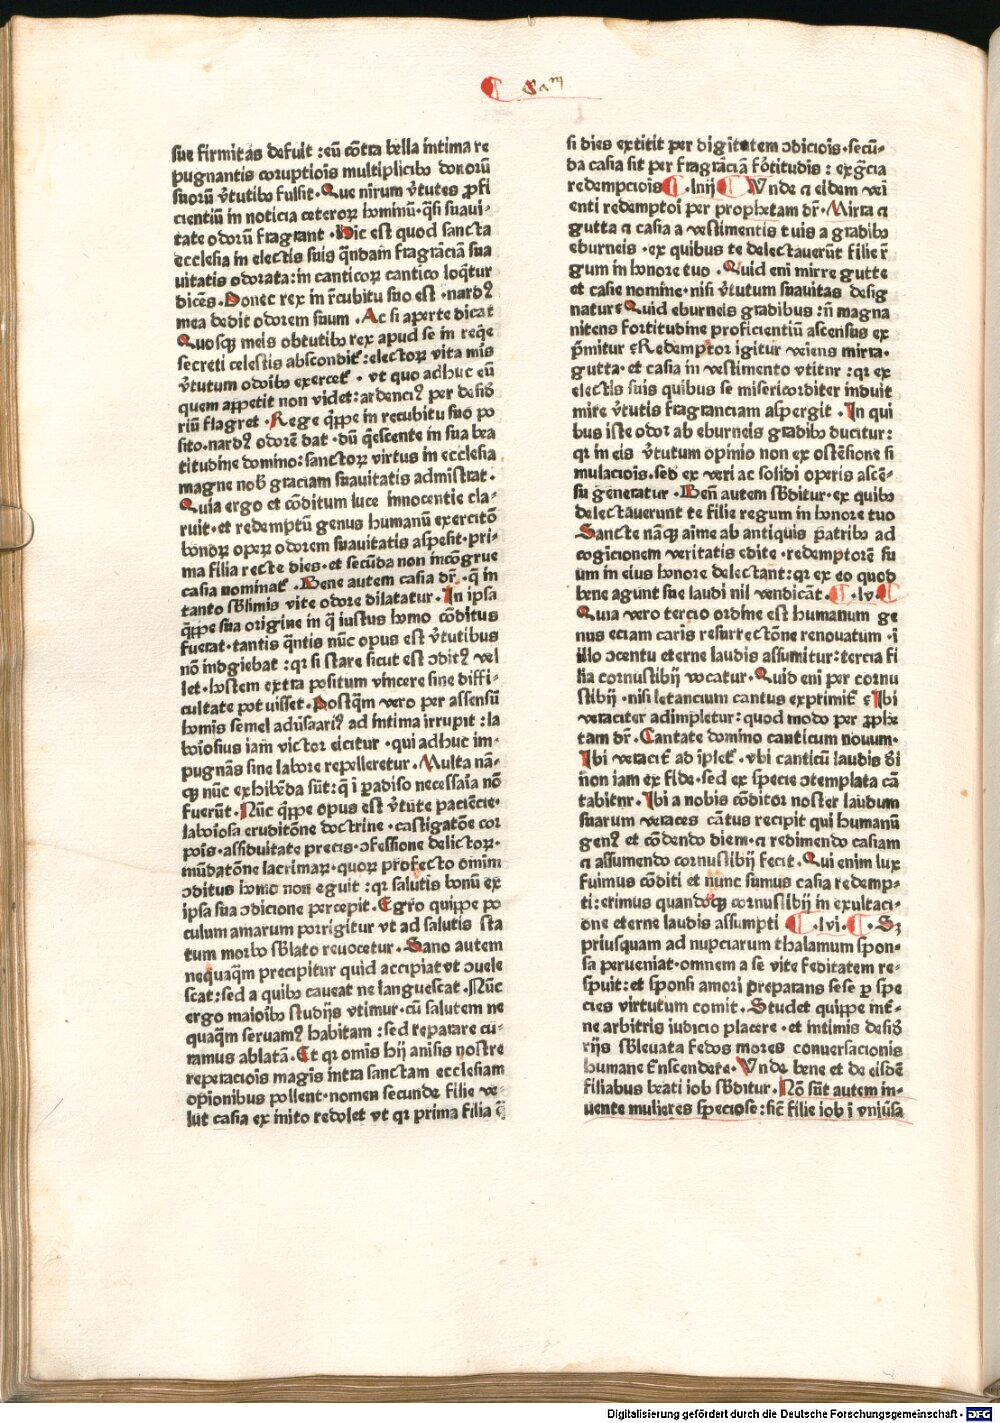 ¶ Sam
sue firmitas defuit : eū cōtra bella intima re
pugnantis coruptiōis multiplicibꝰ donorū
suorū v̄tutibꝰ fulsit. Que nirum v̄tutes ꝓfi
cientiū in noticia ceteroꝝ hominū. q̄si suaui-
tate odorū fragrant . Hic est quod sancta
ecclesia in electis suis q̄ndam fragrāciā sua
uitatis odorata : in canticoꝝ cantico loq̄tur
dicēs. Donec rex in r̄cubitu suo est . nardꝰ
mea dedit odorem suum . Ac si aperte dicat
Quosqꝫ meis obtutibꝰ rex apud se in reqͥe
secreti celestis abscondit᷑ : electoꝝ vita mis
v̄tutum odoibꝰ exercet᷑ . vt quo adhuc eū
quem appetit non videt : ardenciꝰ per desið
riū flagret . Rege q̄ppe in recubitu suo po
sito. nardꝰ odorē dat . dū q̄escente in sua bea
titudine domino : sanctoꝝ virtus in ecclesia
magne nob̄ graciam suauitatis admistrat .
Quia ergo et cōditum luce innocentie cla-
ruit . et redemptū genus humanū exercitō
bonoꝝ opeꝝ odorem suauitatis aspesit . pri-
ma filia recte dies . et secūda non incōgrue
casia nominat᷑ . Bene autem casia dr̄ . q̄ in
tanto sb̄limis vite odore dilatatur . In ipsa
q̄ppe sua origine in q̄ iustus homo cōditus
fuerat . tantis q̄ntis nūc opus est v̄tutibus
nō indgiebat : qꝛ si stare sicut est ↄditꝰ vel
let . hostem extra positum vincere sine diffi-
cultate potuisset . Postq̄m vero per assensū
homis semel adūsariꝰ ad intima irrupit : la
boiosius iam victor eicitur . qui adhuc im-
pugnās sine labore repelleretur . Multa nā-
qꝫ nūc exhibēda sūt : q̄ ī padiso necessaia nō
fuerūt . Nūc q̄ppe opus est v̄tute paciēcie .
laboiosa eruditōne doctrine . castigatōe cor
pois . assiduitate precis . ↄfessione delictoꝝ .
mūdatōne lacrimaꝝ . quoꝝ profecto omīm
ↄditus homo non eguit : qꝛ salutis bonū ex
ipsa sua ↄdicione percepit . Egro quippe po
culum amarum porrigitur vt ad salutis sta
tum morbo sb̄lato reuocetur . Sano autem
nequaq̄m precipitur quid accipiat vt ↄuale
scat : sed a quibꝰ caueat ne languescat . Nūc
ergo maioibꝰ studijs vtimur . cū salutem ne
quaq̄m seruamꝰ habitam : sed reparare cu-
ramus ablatā . Et qꝛ omīs hij anisis nostre
reperaciois magis intra sanctam ecclesiam
opionibus pollent . nomen secunde filie ve-
lut casia ex inito redolet vt qꝛ prima filia q̄
si dies extitit per digitatem ↄdiciois . secū-
da casia sit per fragrāciā fōtitudis : exgr̄cia
redempciois ¶ . lniij ¶ Vnde a eidem vei
enti redemptoi per prophetam dr̄ . Mirra a
gutta a casia a vestimentis tuis a gradibꝰ
eburneis . ex quibus te delectauerūt filie r̄
gum in honore tuo . Quid eni mirre gutte
et casie nomine . nisi v̄tutum suauitas desig
natur ꝰ Quid eburneis gradibus : nī magna
nitens fortitudine proficientiū ascensus ex
p̄mitur ꝰ Redemptor igitur veiens mirra .
gutta . et casia in vestimento vtitur : qꝛ ex
electis suis quibus se misericorditer induit
mire v̄tutis fragranciam aspergit . In qui
bus iste odor ab eburneis gradibꝰ ducitur :
qꝛ in eis v̄tutum opinio non ex ostēsione si
mulaciois . sed ex veri ac solidi operis ascē-
su generatur . Benī autem sb̄ditur . ex quibꝰ
delectauerunt te filie regum in honore tuo
Sancte nāqꝫ aime ab antiquis p̄atribꝰ ad
cogicionem veritatis edite . redemptorē su
um in eius honore delectant : qꝛ ex eo quod
bene agunt sue laudi nil vendicāt . ¶ . lv . ¶
Quia vero tercio ordine est humanum ge
nus eciam caris resurrectōne renouatum . ī
illo ↄcentu eterne laudis assumitur : tercia fi
lia cornustibij vocatur . Quid eni per cornu
stibij . nisi letancium cantus exprimit᷑ ꝰ Ibi
veraciter adimpletur : quod modo per ꝓphe
tam dr̄ . Cantate domino canticum nouum .
Ibi veracit᷑ ad īplet᷑ . vbi canticū laudis dī
non iam ex fide . sed ex specie ↄtemplata cā
tabitur . Ibi a nobis cōditor noster laudum
suarum veraces cātus recipit qui humanū
genꝰ et cōdendo diem . a redimendo casiam
a assumendo cornustibij fecit . Qui enim lux
fuimus cōditi et nunc sumus casia redemp-
ti : erimus quandoqꝫ cornustibij in exultaci-
one eterne laudis assumpti ¶ . lvi . ¶ . Sꝫ
priusquam ad nupciarum thalamum spon-
sa perueniat . omnem a se vite feditatem re-
spuit : et sponsi amori preparans sese ꝑ spe
cies virtutum comit . Studet quippe int᷑-
ne arbitris iudicio placere . et intimis desið
rijs sb̄leuata fedos mores conuersacionis
humane t᷑nscendere . Vnde bene et de eisdē
filiabus beati iob sb̄ditur . Nō sūt autem in-
uente mulieres speciose : sic̄ filie iob ī vniūsa
Digitalisierung gefördert durch die Deutsche Forschungsgemeinschaft - DFG